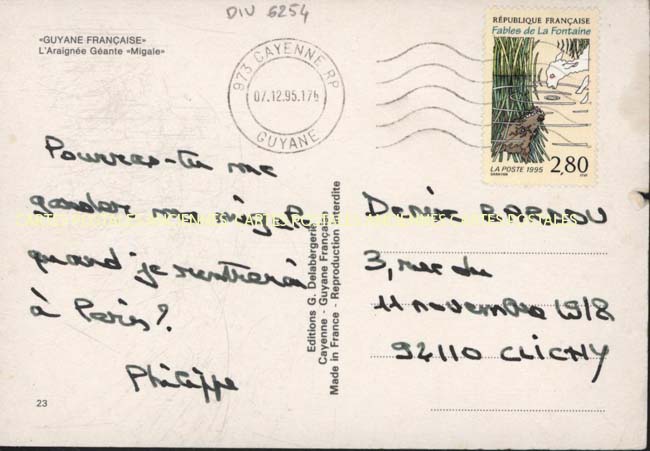 DIV 6254
«GUYANE FRANÇAISE»
L'Araignée Géante «Migale»
973 CAYENNE RP
07.12.95.17h
GUYANE
RÉPUBLIQUE FRANÇAISE
Fables de La Fontaine
LA POSTE 1995
2,80
Pourras-tu me
garder ma migale
quand je rentrerai
à Paris?
Philippe
23
Editions G. Delabergerie
Cayenne - Guyane Française
Made in France - Reproduction interdite
Denis
3, rue du
11 novembre 1918
92110 CLICHY
CARTES POSTALES ANCIENNES CARTES POSTALES ANCIENNES CARTES POSTALES